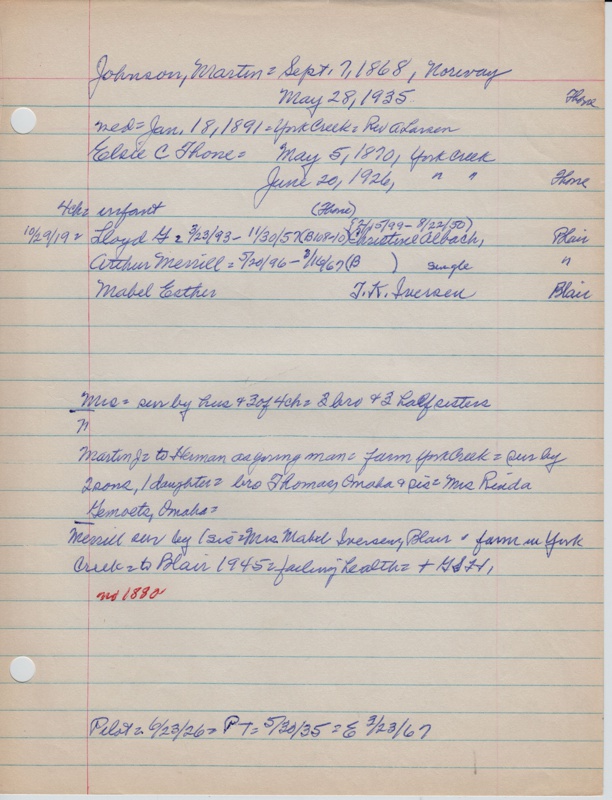 Johnson, Martin = Sept. 7, 1868, Norway
May 28, 1935 Thone
med = Jan. 18, 1891 = York Creek = Rev A Larsen
Elsie C Thone = May 5, 1870, York Creek
June 20, 1926, " " Thone
4ch = infant (Thone)
(2/15/99 - 8/22/50)
10/29/19 = Lloyd G = 3/23/93 - 11/30/57 (B108-10) Christine Albach, Blair
Arthur Merrill = 5/20/96 - 3/16/67 (B ) single "
Mabel Esther T. K. Iversen Blair
Mrs = sur by hus & 3 of 4 ch = 3 bro & 3 half sisters
"
Martin J = to Herman as young man = farm York Creek = sur by
2 sons, 1 daughter = bro Thomas, Omaha & sis = Mrs Rinda
Gemoets, Omaha =
Merrill sur by 1 sis = Mrs Mabel Iversen, Blair = farm in York
Creek = to Blair 1945 = failing health = + GSH,
no 1880
Pilot = 6/23/26 = P T = 5/30/35 = E 3/23/67